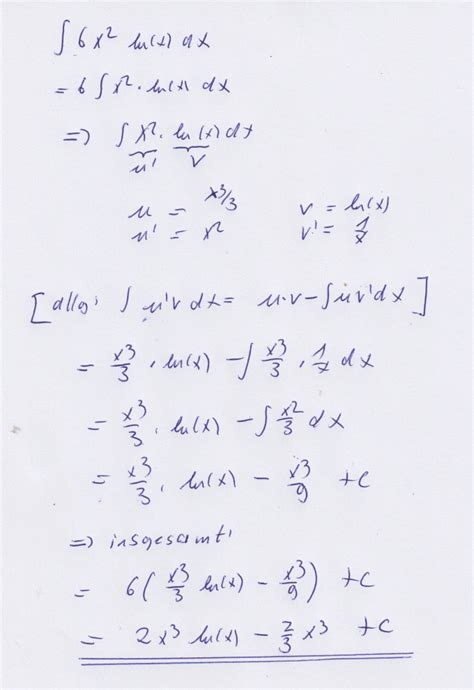 ∫ 6x² ln(x) dx
= 6 ∫ x² · ln(x) dx
=> ∫ x² · ln(x) dx
u' v
u = x³/3 v = ln(x)
u' = x² v' = 1/x
[allg: ∫ u'v dx = u·v - ∫ uv' dx]
= x³/3 · ln(x) - ∫ x³/3 · 1/x dx
= x³/3 · ln(x) - ∫ x²/3 dx
= x³/3 · ln(x) - x³/9 + c
=> insgesamt:
= 6( x³/3 ln(x) - x³/9 ) + c
= 2x³ ln(x) - 2/3 x³ + c